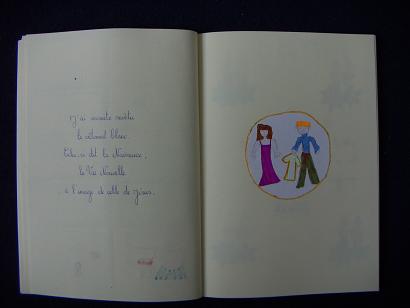 J'ai ensuite revêtu
le vêtement blanc.
Celui-ci dit la Naissance,
la Vie Nouvelle
à l'image de celle de Jésus.